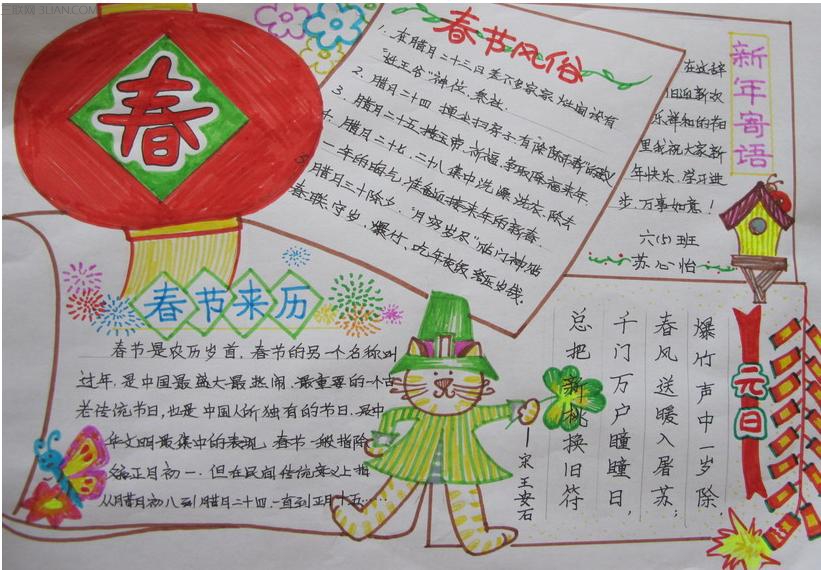 春
春节风俗
1、在腊月二十三日差不多家家灶间设有
“灶王爷”神位.祭灶.
2、腊月二十四,掸尘扫房子,有“除陈布新”的涵义
3、腊月二十五,接玉帝,祈福,争取降福来年.
4、腊月二十七、二十八集中洗澡、洗衣,除去
一年的晦气,准备迎接来年的新春.
5、腊月三十除夕,“月穷岁尽”贴门神贴
春联、守岁、爆竹、吃年夜饭、给压岁钱.
新年寄语
在这辞
旧迎新欢
乐祥和的节日
里我祝大家新
年快乐,学习进
步,万事如意!
六(5)班
苏心怡
春节来历
春节是农历岁首,春节的另一个名称叫
过年,是中国最盛大最热闹、最重要的一个古
老传统节日,也是中国人所独有的节日.是中
华文明最集中的表现,春节一般指除
夕和正月初一.但在民间传统意义上指
从腊月初八到腊月二十四.一直到正月十五……
元日
爆竹声中一岁除,
春风送暖入屠苏;
千门万户曈曈日,
总把新桃换旧符
——宋 王安石